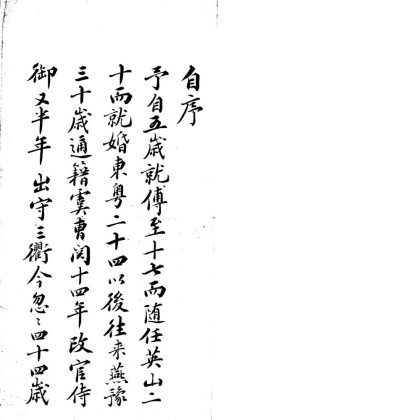 自序
予自五歲就傅至十七而隨任英山二
十而就婚東粵二十四以後往来燕豫
三十歲通籍虞曹閱十四年改官侍
御又半年出守三衢今忽〻四十四歲